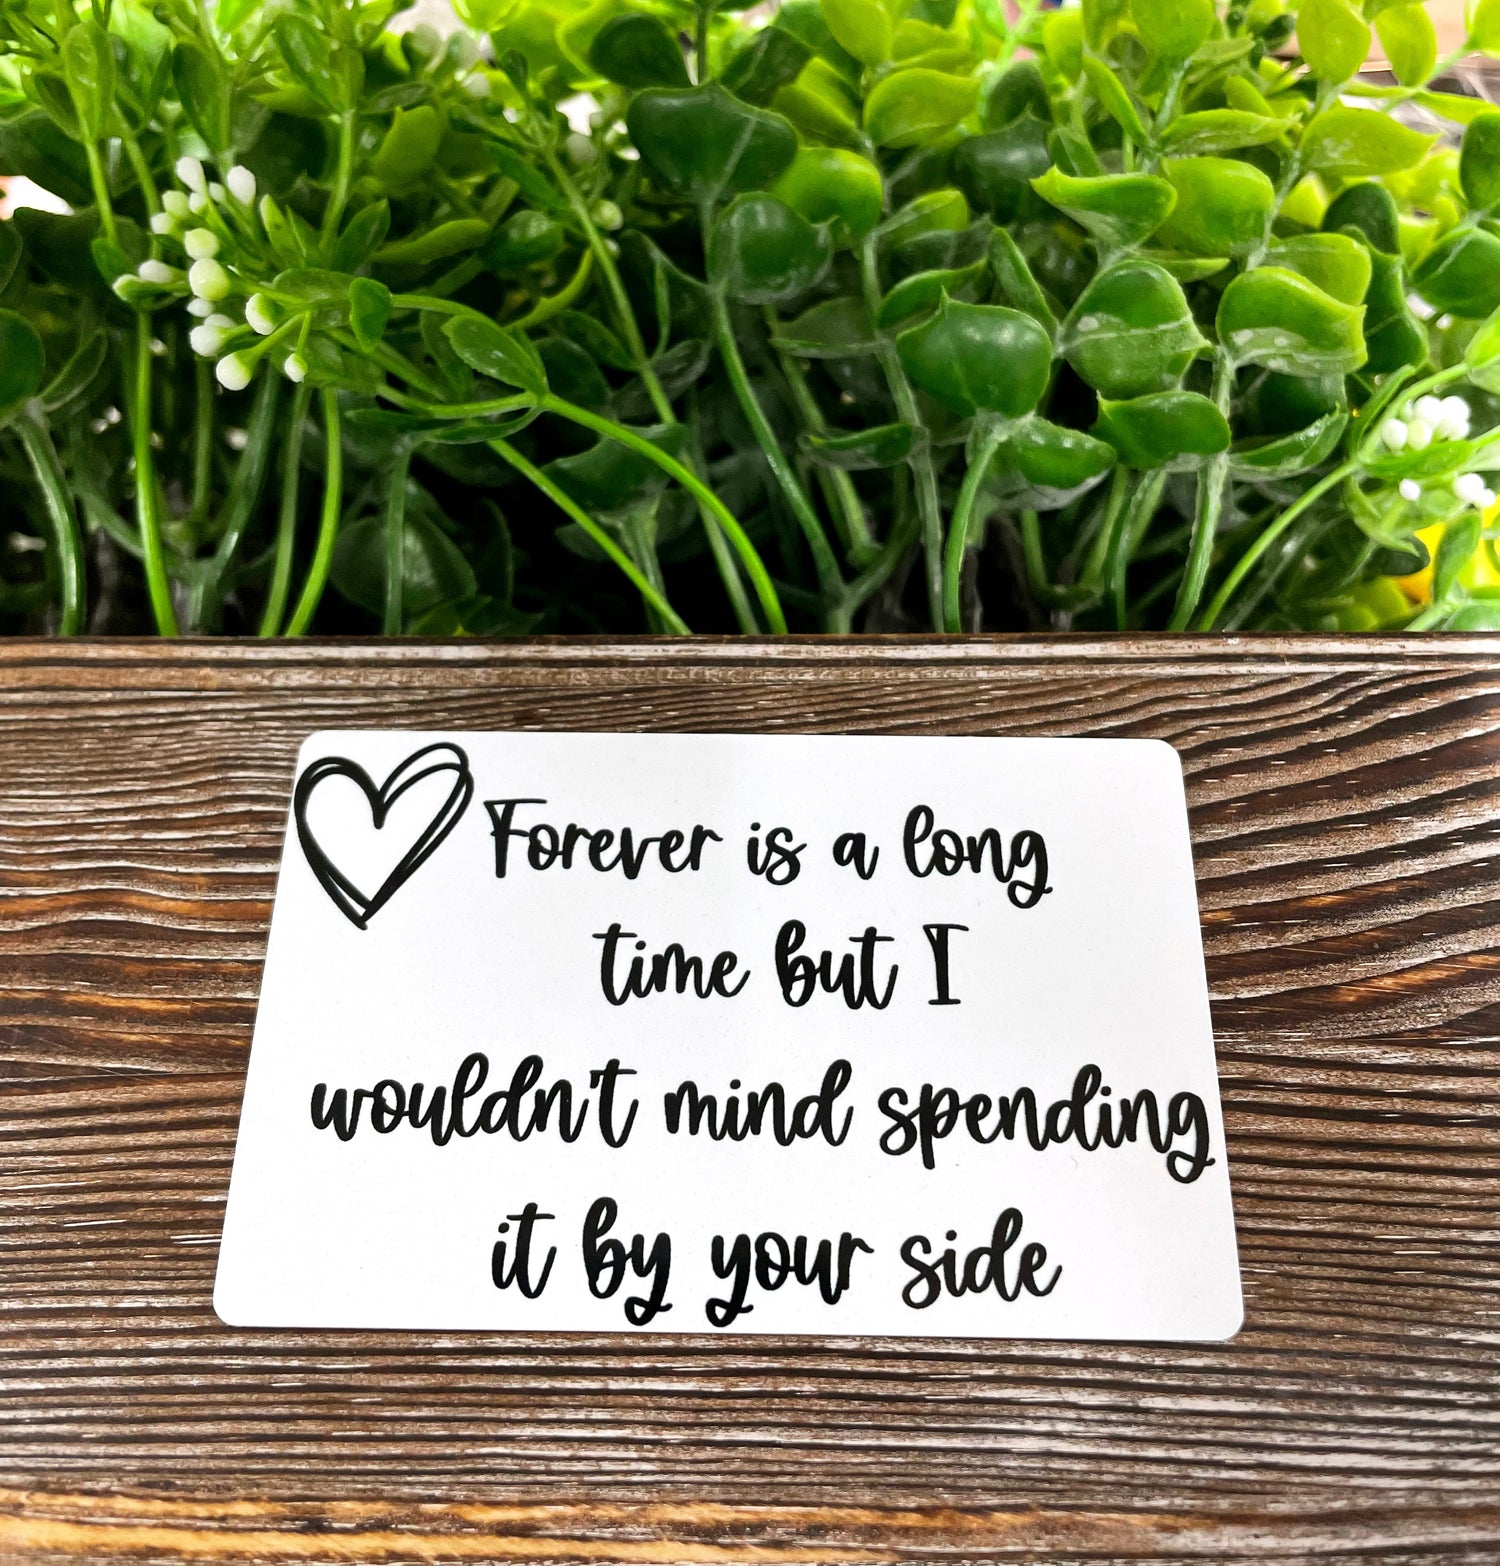 Forever is a long
time but I
wouldn't mind spending
it by your side